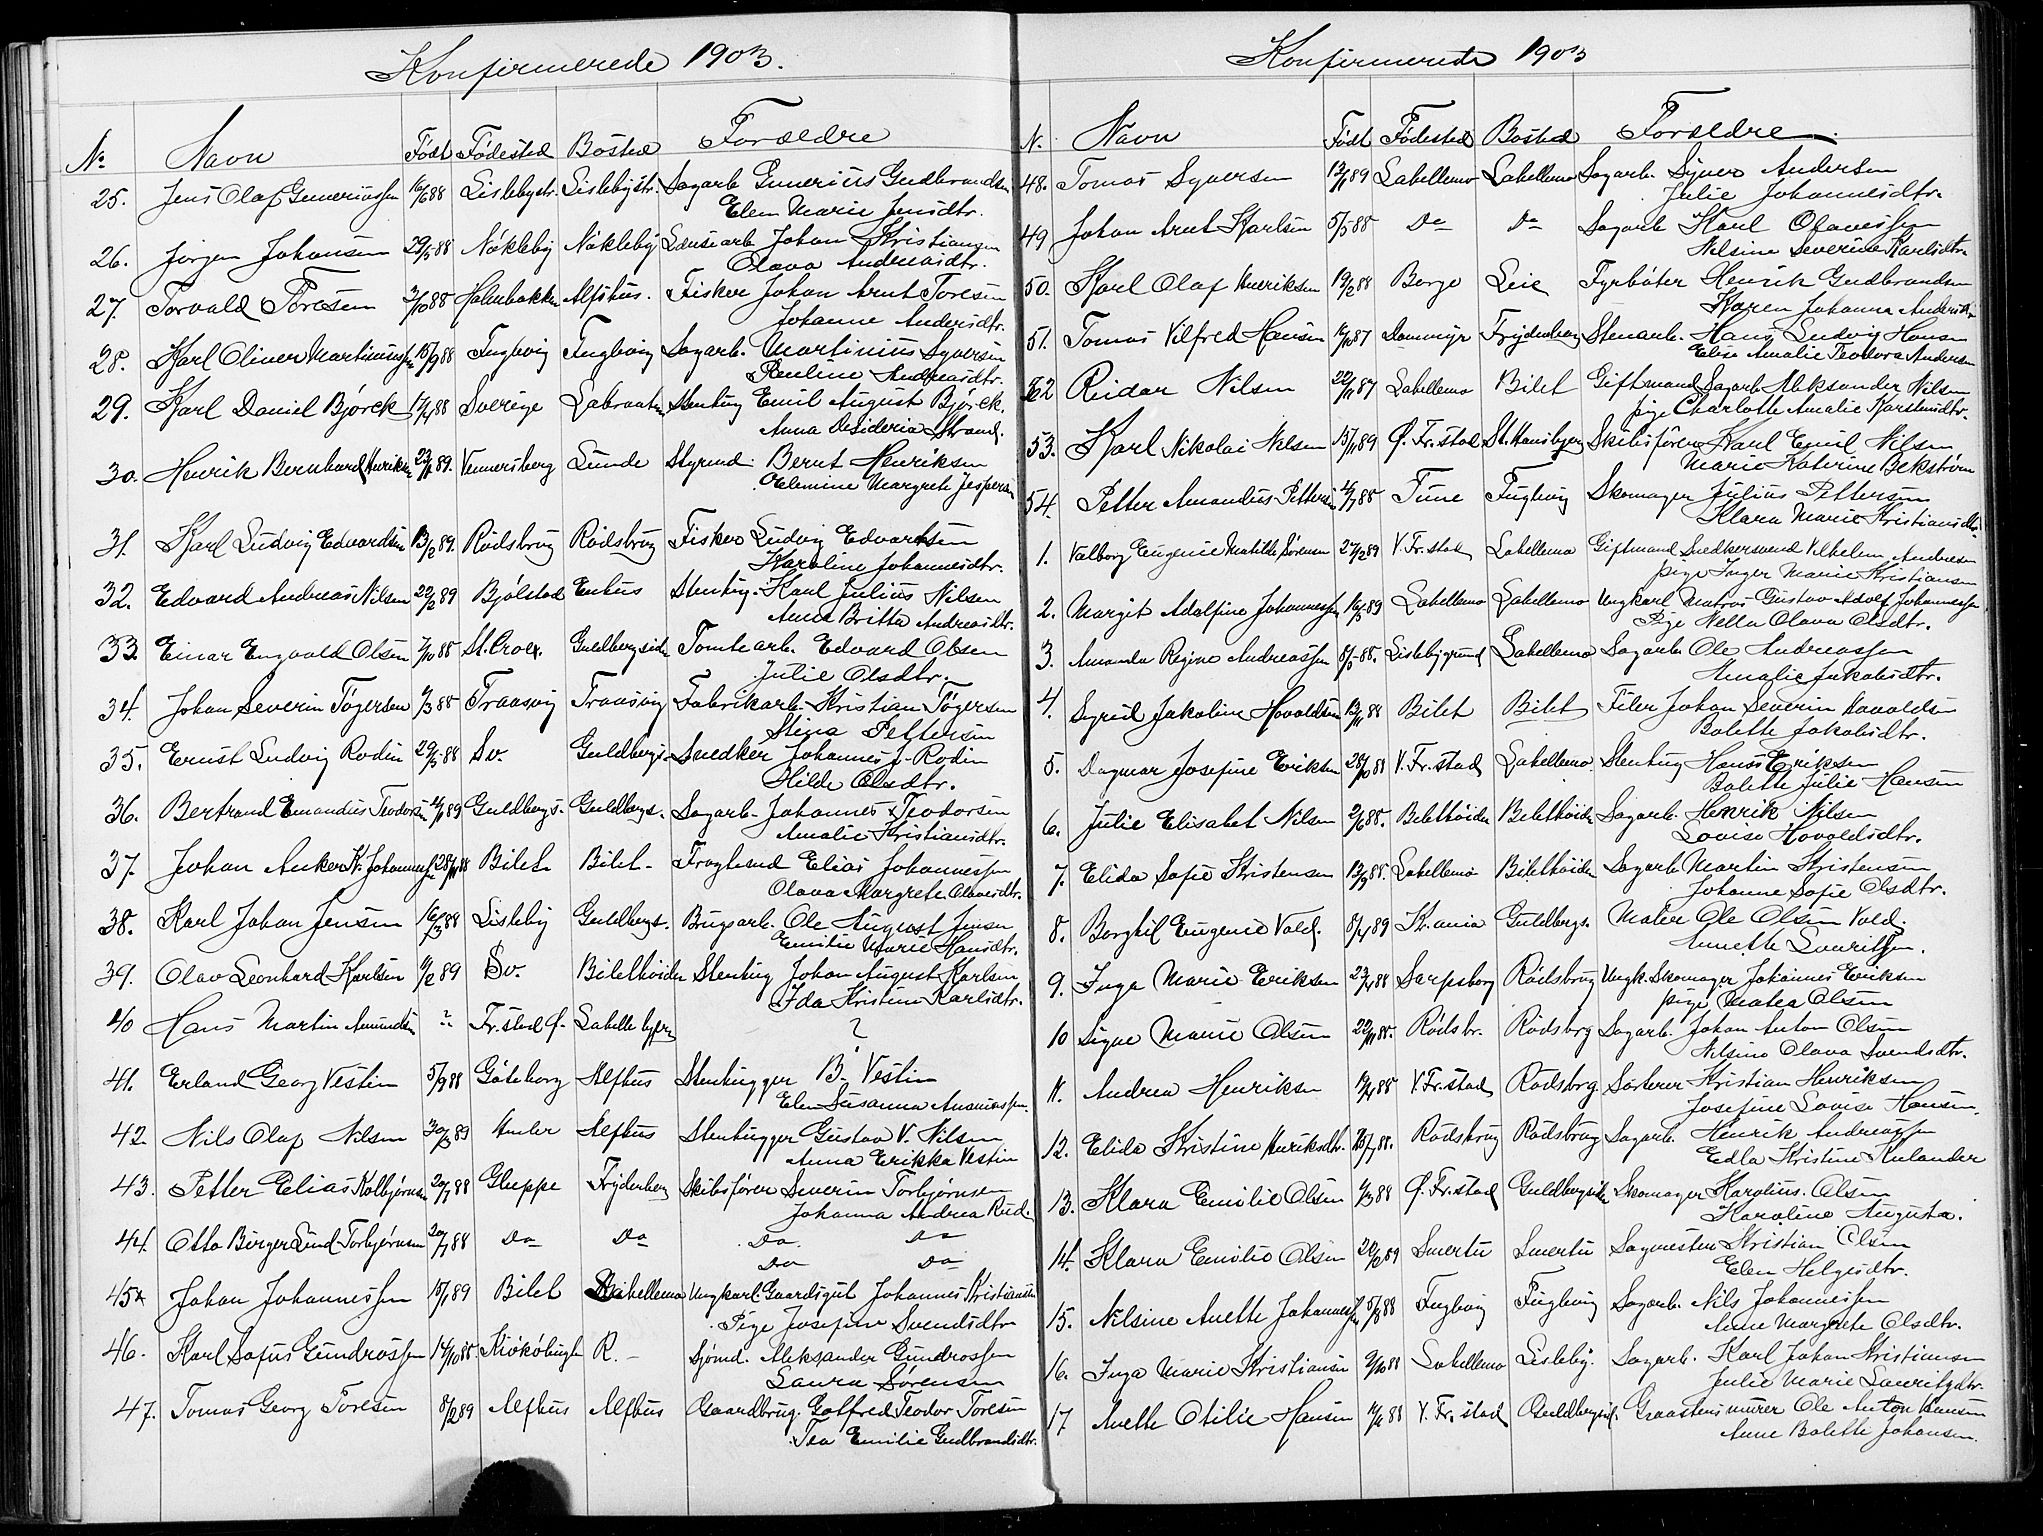 Konfirmerede 1903.
No Navn Født Fødested Bosted Forældre
25. Jens Olaf Gunerius­sen 16/6 88 Lislebystr. Lislebystr. Sagarb Gunerius Gudbrandsen
Elen Marie Jensdtr.
26. Jørgen Johansen 29/5 88 Nökleby Nökleby Lænsearb Johan Kristiansen
Olava Andreasdtr.
27. Torvald Toresen 3/10 88 Holmbakken Alfshus. Fisker Johan Arnt Toresen
Johanne Andersdtr.
28. Karl Oliver Martiniussen 15/9 88 Fuglevig Fuglevig Sagarb. Martinius Syversen
Pauline Andreasdtr.
29. Karl Daniel Bjørck 17/4 88 Sverige Labraaten Stenhug Emil August Bjørck.
Anna Desideria Strand.
30. Henrik Bernhard Henriksen 23/1 89. Vennersberg Lunde Styrmd. Bernt Henriksen
Elemine Margrete Jespersen
31. Karl Ludvig Edvardsen 13/2 89. Rødsbrug Rødsbrug Fisker Ludvig Edvardsen
Karoline Johannesdtr.
32. Edvard Andreas Nilsen 22/2 89 Bjølstad Enhus Stenhug. Karl Julius Nilsen
Anna Britta Andreasdtr.
33. Einar Engvald Olsen 7/10 88 St. Croix. Guldbergsiden Tomtearb. Edvard Olsen
Julie Olsdtr.
34. Johan Severin Tøgersen 4/3 88 Traasvig Traasvig Fabrikarb. Kristian Tøgersen
Stina Pettersen
35. Ernst Ludvig Rodin 29/5 88 Sv. Guldbergs. Snedker Johannes J. Rodin
Hilde Olsdtr.
36. Bertrand Emandus Teodorsen 2/1 89 Guldbergs. Guldbergs. Sagarb. Johannes Teodorsen
Amalie Kristiansdtr.
37. Johan Anker K. Johannessen 28/11 88 Bilet Bilet Fragtmd Elias Johannessen
Olava Margrete Olavesdtr.
38. Karl Johan Jensen 16/3 88 Lisleby Guldbergs. Brugarb. Ole August Jensen
Emilie Marie Hansdtr.
39. Olav Leonhard Karlsen 4/2 89 Sv. Bilethöiden Stenhug Johan August Karlsen
Ida Kristine Karlsdtr.
40 Hans Martin Amundsen ? Fr.stad Ø. Labelle ?
41. Erland Georg Vestin 5/9 88 Göteborg Alfhus Stenhugger B. Vestin
Elen Susanna
42. Nils Olaf Nilsen 30/3 89 Alfhus Stenhugger Gustav V. Nilsen
Anna Erikka Vestin
43. Petter Elias Kolbjørnsen 20/7 88 Gleppe Frydenberg Skibsfører Severin Torbjørnsen
Johanna Andrea Rud.
44. Otto Birger Lund Torbjørnsen 20/7 88 Do Do Do Do
Do Do
45 Johan Johannessen 15/1 89 Bilet Labellemo Ungkarl. Gaardsgut Johannes Kristiansen
Pige Josefine Svendsdtr
46. Karl Sofus Gundrossen 14/10 88. R. Sjømd. Aleksander Gundrossen
Laura Sørensen
47. Tomas Georg Toresen 8/2 89 Alfhus Alfhus Gaardbrug. Gotfred Teodor Toresen
Tea Emilie Gudbrandsdtr.
Konfirmerede 1903
N. Navn Født Fødested Bosted Forældre.
48. Tomas Syversen 12/1 89 Labellemo Labellemo Sagarb. Syver Andersen
Julie Johannesdtr.
49 Johan Arnt Karlsen 5/5 88 Do Do Sagarb Karl Olavessen
Nilsine Severine Karlsdtr.
50. Karl Olaf Henriksen 19/2 88 Borge Leie Fyrbøter Henrik Gudbrandsen
Karen Johanna Andersdtr
51. Tomas Vilfred Hansen 16/10 87 Dammyr Frydenberg Stenarb. Hans Ludvig Hansen
Elise Amalie Teodora Andersen
52 Reidar Nilsen 22/11 87 Labellemo Bilet Giftmand Sagarb Aleksander Nilsen
pige Charlotte Amalie Karstensdtr.
53. Karl Nikolai Nilsen 15/11 89 Ø. Fr.stad St. Hansbjerg Skibsfører Karl Emil Nilsen
Marie Katerine Bekstrøm
54. Petter Amandus Pettersen 4/7 88 Tune Fuglevig Skomager Julius Pettersen
Klara Marie Kristiansdtr.
1. Valborg Eugenie Matilde Sørensen 27/2 89 V. Fr.stad Labellemo Giftmand Snedkersvend Vilhelm Andresen
pige Inger Marie Kristiansen
2. Margit Adolfine Johannessen 16/5 89 Labellemo Labellemo Ungkarl Matros Gustav Adolf Johannessen
Pige Nella Olava Olsdtr.
3. Amanda Regine Andreassen 8/5 88. Lislebygrund Labellemo Sagarb. Ole Andreassen
Amalie Jakobsdtr.
4. Sigrid Jakobine Hovoldsen 13/11 88 Bilet Bilet Filer Johan Severin Havoldsen
Bolette Jakobsdtr.
5. Dagmar Josefine Eriksen 28/10 88 V. Fr.stad Labellemo Stenhug Hans Eriksen
Bolette Julie Hansen
6. Julie Elisabet Nilsen 2/6 88. Bilethöiden Bilethöiden Sagarb. Henrik Nilsen
Lovise Hovoldsdtr.
7. Elida Sofie Kristensen 13/9 88. Labellemo Bilethöiden Sagarb Martin Kristensen
Johanne Sofie Olsdtr.
8. Borghil Eugenie Vold. 8/4 89 Kr.ania Guldbergs. Maler Ole Olsen Vold.
Annette Lauritsen.
9. Inga Marie Eriksen 23/4 88 Sarpsborg Rødsbrug Ungk. Skomager Johannes Eriksen
pige Matea Olsen
10 Signe Marie Olsen 22/11 88. Rødsbr. Rødsbrg Sagarb. Johan Anton Olsen
Nilsine Olava Svendsdtr.
11. Andrea Henriksen 12/4 88 V. Fr.stad Rødsbrg. Sorterer Kristian Henriksen
Josefine Lovise Hansen.
12. Elida Kristine Henriksdtr. 25/7 88. Rødsbrug Rødsbrug Sagarb. Henrik Andreassen
Edla Kristine Kulander
13. Klara Emilie Olsen 4/3 88 Ø. Fr.stad Guldbergsiden Skomager Karolius. Olsen
Karoline Augusta.
14. Klara Emilie Olsen 22/2 89 Smertu Smertu Sagmester Kristian Olsen
Elen Helgesdtr.
15. Nilsine Anette Johannessen 5/8 88 Fuglevig Fuglevig Sagarb. Nils Johannessen
Anne Margrete Olsdtr.
16. Inga Marie Kristiansen 9/10 88 Labellemo Lisleby. Sagarb. Karl Johan Kristiansen
Julie Marie Lauritzdtr.
17 Anette Otilie Hansen 11/2 88 V. Fr.stad Guldbergsid. Graastensmurer Ole Anton Hansen
Anne Bolette Johansen.